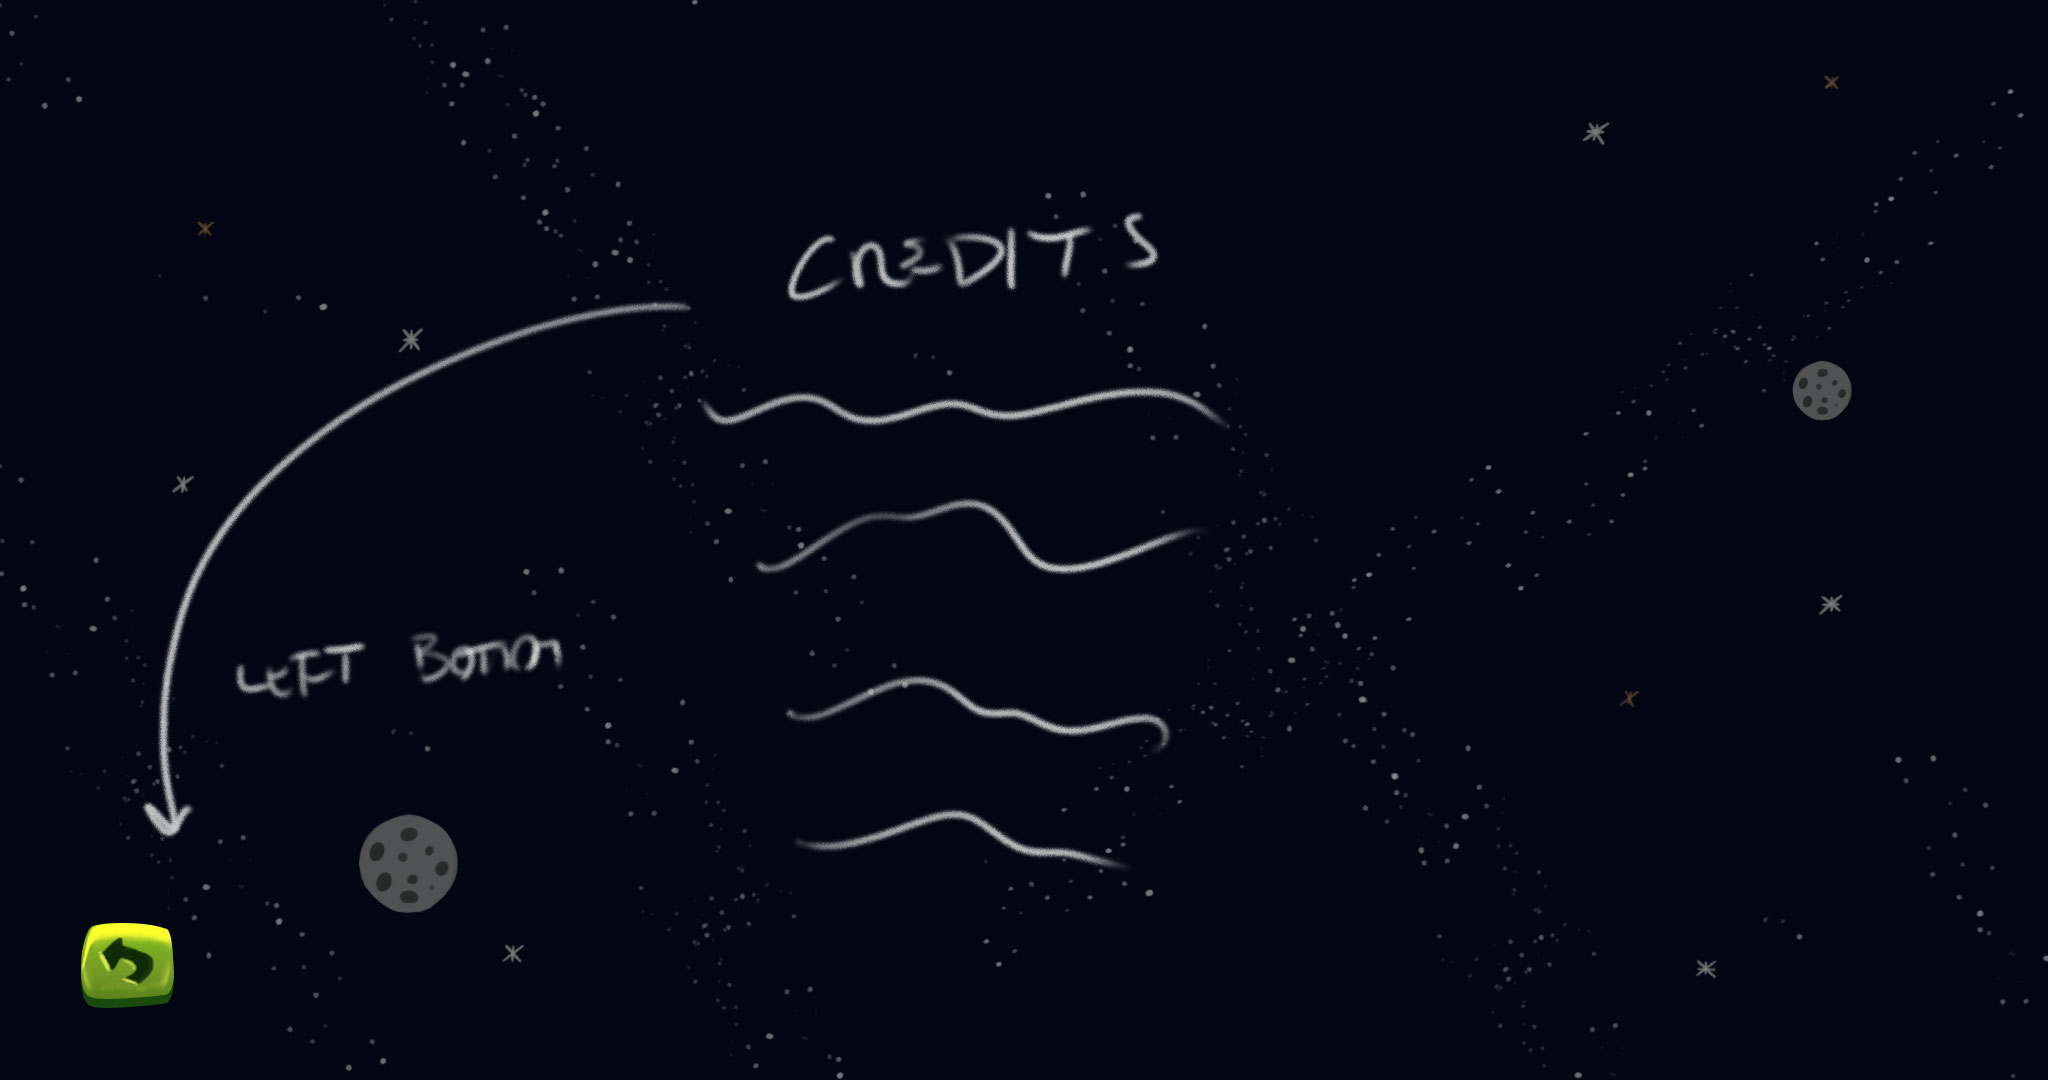 CREDITS
LEFT BOTTOM